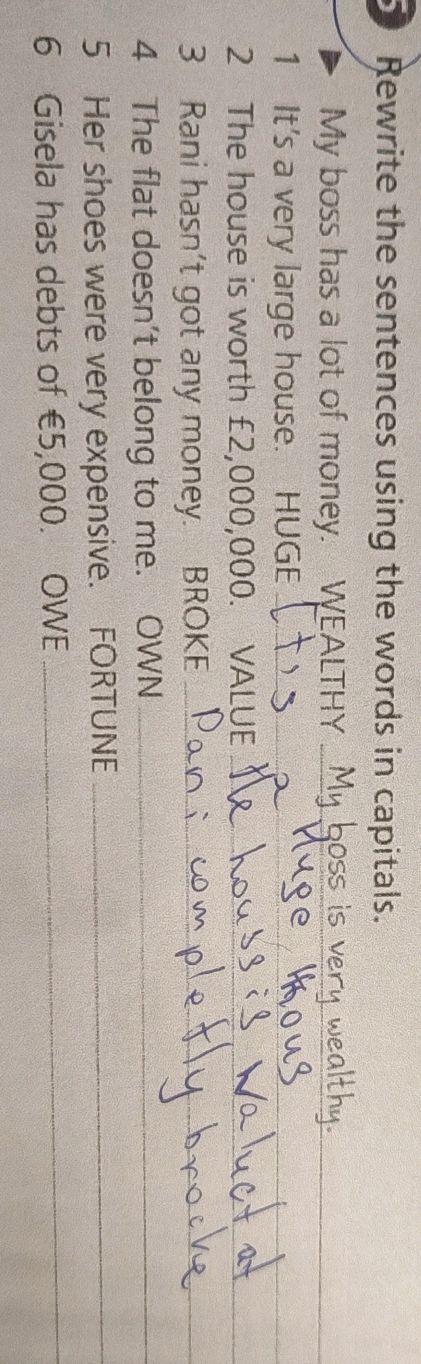 5 Rewrite the sentences using the words in capitals.
▶ My boss has a lot of money. WEALTHY My boss is very wealthy.
1 It's a very large house. HUGE It is a Huge hous
2 The house is worth £2,000,000. VALUE the houss is Waluct at
3 Rani hasn't got any money. BROKE Pani completly brocke
4 The flat doesn't belong to me. OWN
5 Her shoes were very expensive. FORTUNE
6 Gisela has debts of €5,000. OWE